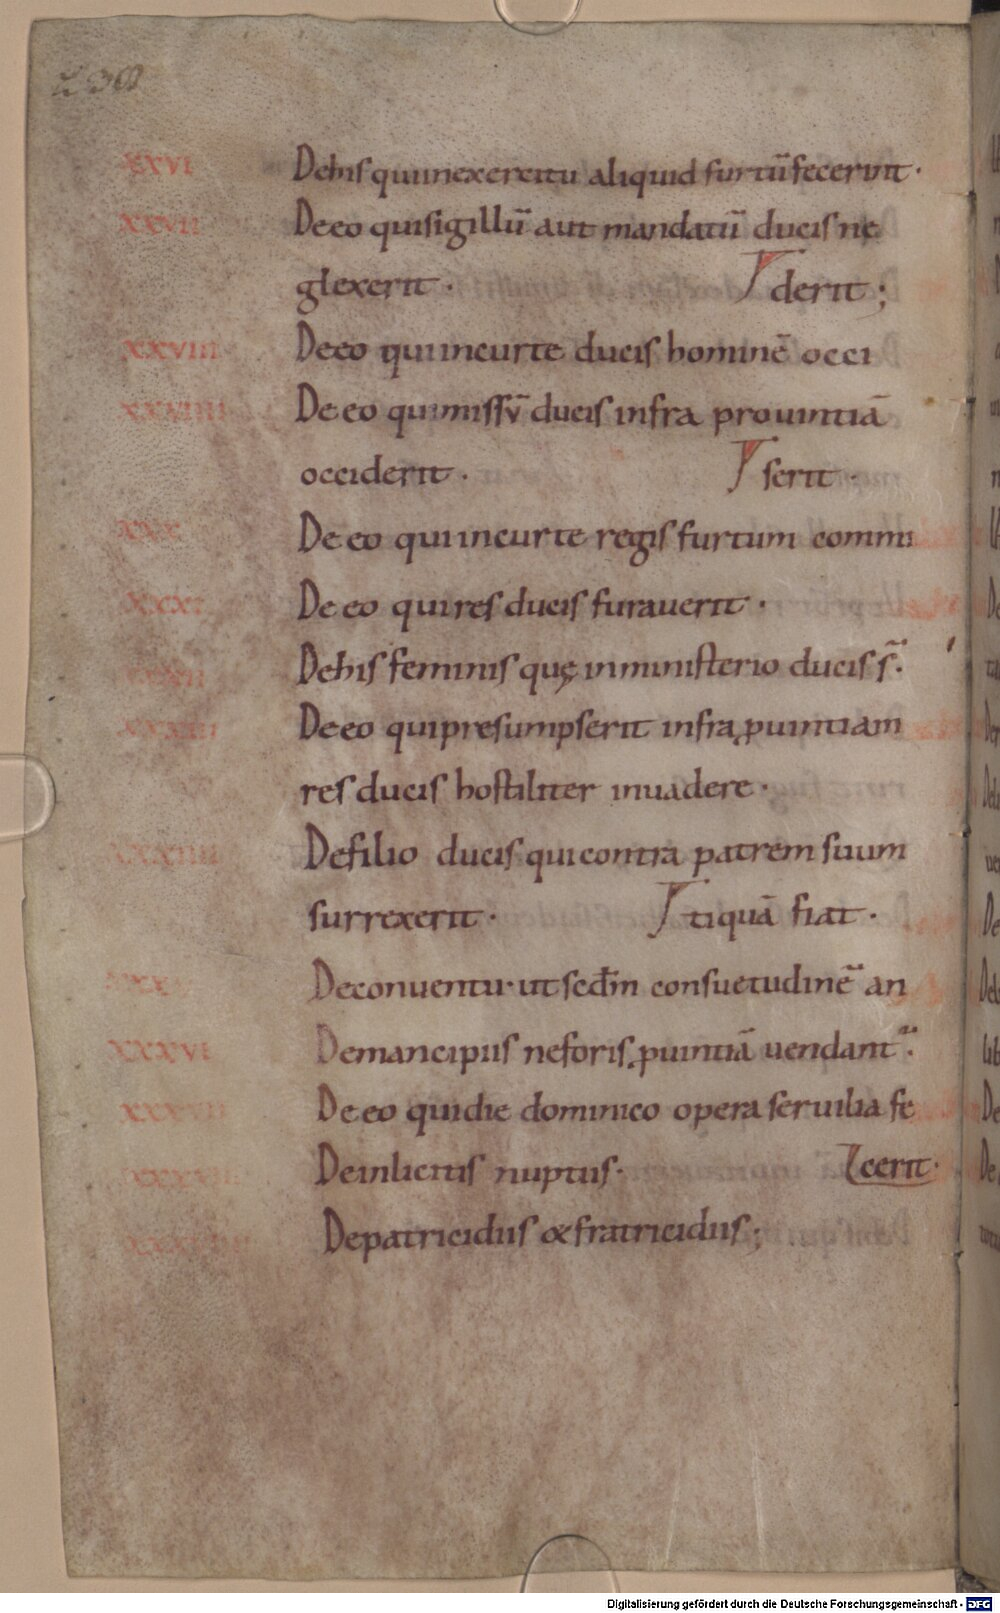 XXVI Dehis quiinexercitu aliquid furtū fecerint·
XXVII Deeo quisigillū aut mandatū ducis ne
glexerit· derit;
XXVIII Deeo quiincurte ducis hominē occi
XXVIIII Deeo quimissū ducis infra prouintiā
occiderit· serit·
XXX Deeo quiincurte regis furtum commi
XXXI Deeo quires ducis furauerit·
XXXII Dehis feminis quę inministerio ducis s̄·
XXXIII Deeo quipresumpserit infra ꝓuintiam
res ducis hostiliter inuadere·
XXXIIII Defilio ducis quicontra patrem suum
surrexerit· tiquā fiat·
XXXV Deconuentu· ut scd̄m consuetudinē an
XXXVI Demancipiis neforis ꝓuintiā uendant᷑·
XXXVII Deeo quidie dominico opera seruilia fe
XXXVIII Deinlicitis nuptiis· cerit·
XXXVIIII Depatricidiis & fratricidiis;
Digitalisierung gefördert durch die Deutsche Forschungsgemeinschaft - DFG